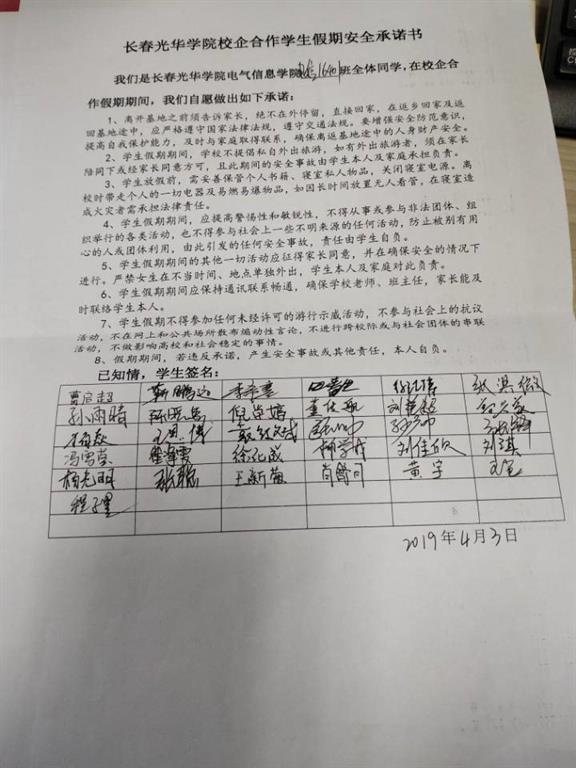 长春光华学院校企合作学生假期安全承诺书
我们是长春光华学院电气信息学院 班全体同学,在校企合
作假期期间,我们自愿做出如下承诺:
1、离开基地之前须告诉家长,绝不在外停留,直接回家,在返乡回家及返
回基地途中,应严格遵守国家法律法规,遵守交通法规,要增强安全防范意识,
提高自我保护能力,及时与家庭取得联系,确保离返基地途中的人身财产安全。
2、学生假期期间,学校不提倡私自外出旅游,如有外出旅游者,须在家长
陪同下或经家长同意方可,且此期间的安全事故由学生本人及家庭承担负责。
3、学生放假前,需妥善保管个人书籍、寝室私人物品,关闭寝室电源。离
校时带走个人的一切电器及易燃易爆物品,如因长时间放置无人看管,在寝室造
成火灾者需承担法律责任。
4、学生假期期间,应提高警惕性和敏锐性,不得从事或参与非法团体、组
织举行的各类活动,也不得参与社会上一些不明来源的任何活动,防止被别有用
心的人或团体利用,由此引发的任何安全事故,责任由学生自负。
5、学生假期期间的其他一切活动应征得家长同意,并在确保安全的情况下
进行。严禁女生在不当时间、地点单独外出,学生本人及家庭对此负责。
6、学生假期期间应保持通讯联系畅通,确保学校老师、班主任,家长能及
时联络学生本人。
7、学生假期不得参加任何未经许可的游行示威活动,不参与社会上的抗议
活动,不在网上和公共场所散布煽动性言论,不进行跨校际或与社会团体的串联
活动,不做影响高校和社会稳定的事情。
8、假期期间,若违反承诺,产生安全事故或其他责任,本人自负。
已知情,学生签名:
曹启超 靳鹏远
孙雨晴 倪学婷
冯雪莹 徐化成 刘佳欣 刘淇
杨光明 王新苗 黄宇
程子里
2019年4月3日